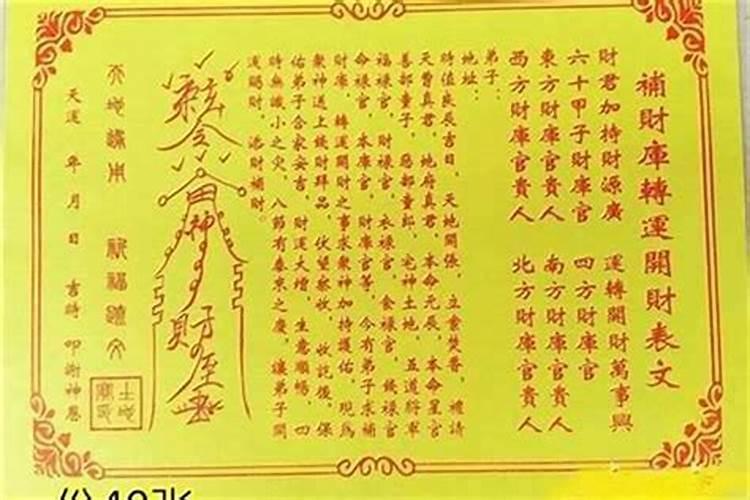 補財庫轉運開財表文
財君加持財源廣 運轉開財萬事興
六十甲子財庫官 四方財庫官
東方財庫官貴人 南方財庫官貴人
西方財庫官貴人 北方財庫官貴人
弟子：
地址：
時值良辰吉日，天地開張，立案焚香，禮請
天曹真君，地府真君，本命元辰，本命星官
善部童子，惡部童郎，宅神土地，五道將軍
福祿官，財祿官，衣祿官，食祿官，錢祿官
命祿官，本庫官，財庫官等，今有弟子求補
財庫，轉運開財之事求眾神加持護佑，現為
眾神送上錢財拜品，伏望察收，收訖後，保
佑弟子合家安吉，財運大增，生意順暢，四
時無識小之災，八節有泰來之慶，讓弟子開
運賜財，添財補財。
敕令
神
財庫
祈福
天運 年 月 日 吉時 叩謝神恩